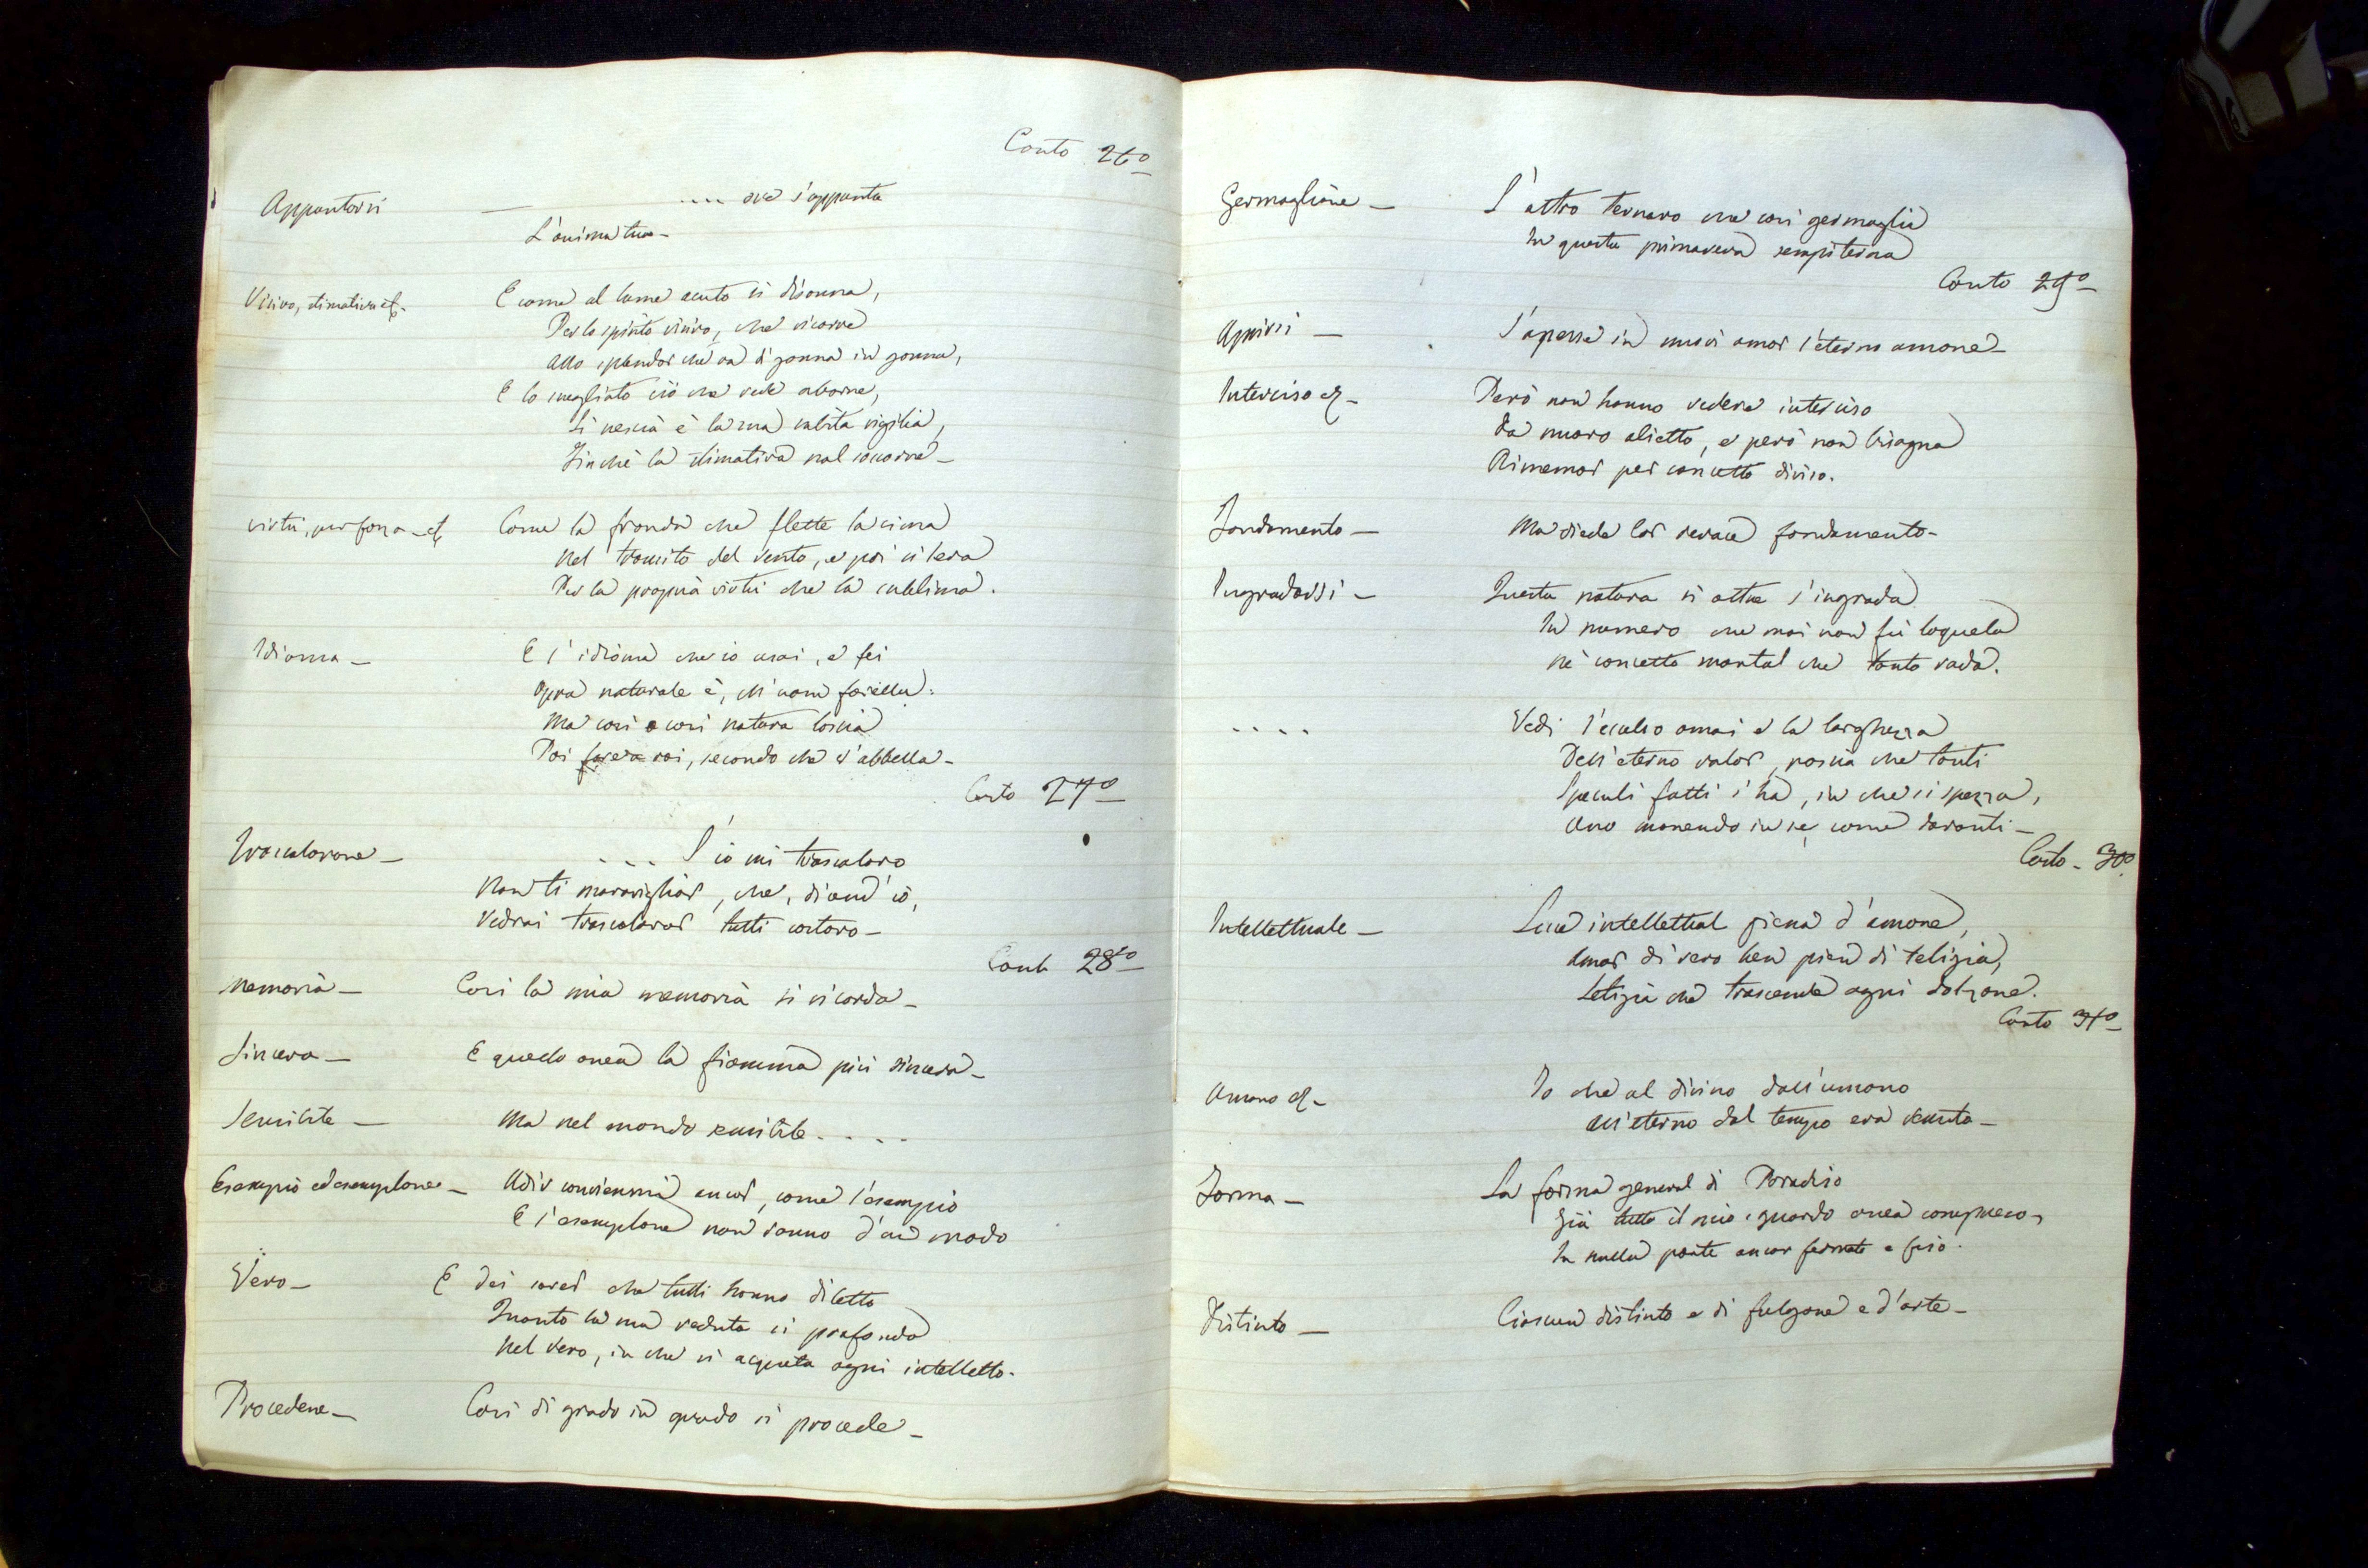 Canto 26º
Appuntarsi — .... ove s'appunta
L'anima tua—
Visivo, stimativa &. E come al lume acuto si disonna,
Per lo spirto visivo, che ricorre
Allo splendor che va di gonna in gonna,
E lo svegliato ciò che vede aborre,
Sì nescia è la sua subita vigilia,
Finchè la stimativa nol soccorre—
virtù, per forza—& Come la fronda che flette la cima
Nel transito del vento, e poi si leva
Per la propria virtù che la sublima.
Idioma— E l'idioma che io usai, e fei
Opra naturale è, ch'uom favella:
Ma così o così natura lascia
Poi fare a voi, secondo che v'abbella—
Canto 27º
Trascolorare— ... S'io mi trascoloro
Non ti maravigliar, che, dicend'io,
Vedrai trascolorar tutti costoro—
Canto 28º
Memoria— Così la mia memoria si ricorda—
Sincera— E quello avea la fiamma più sincera—
Sensibile— Ma nel mondo sensibile....
Esempio ed esemplare— Udir conviemmi ancor, come l'esempio
E l'esemplare non vanno d'un modo
Vero— E dei saver che tutti hanno diletto
Quanto la sua veduta si profonda
Nel vero, in che si acqueta ogni intelletto.
Procedere— Così di grado in grado si procede—
Germogliare— L'altro ternaro che così germoglia
In questa primavera sempiterna
Canto 29º
Aprirsi— S'aperse in nuovi amor l'eterno amore—
Interciso &— Però non hanno vedere interciso
Da nuovo obietto, e però non bisogna
Rimemorar per concetto diviso.
Fondamento— Ma diede lor verace fondamento—
Ingradarsi— Questa natura sì oltre s'ingrada
In numero che mai non fu loquela
Nè concetto mortal che tanto vada.
.... Vedi l'eccelso omai e la larghezza
Dell'eterno valor, poscia che tanti
Speculi fatti s'ha, in che si spezza,
Uno manendo in se come davanti—
Canto— 30º
Intellettuale— Luce intellettual piena d'amore,
Amor di vero ben pien di letizia,
Letizia che trascende ogni dolzore.
Canto 31º
Umano &— Io che al divino dall'umano
All'eterno dal tempo era venuto—
Forma— La forma general di Paradiso
Già tutta il mio sguardo avea compreso,
In nulla parte ancor fermato e fiso.
Distinto— Ciascun distinto e di fulgore e d'arte—